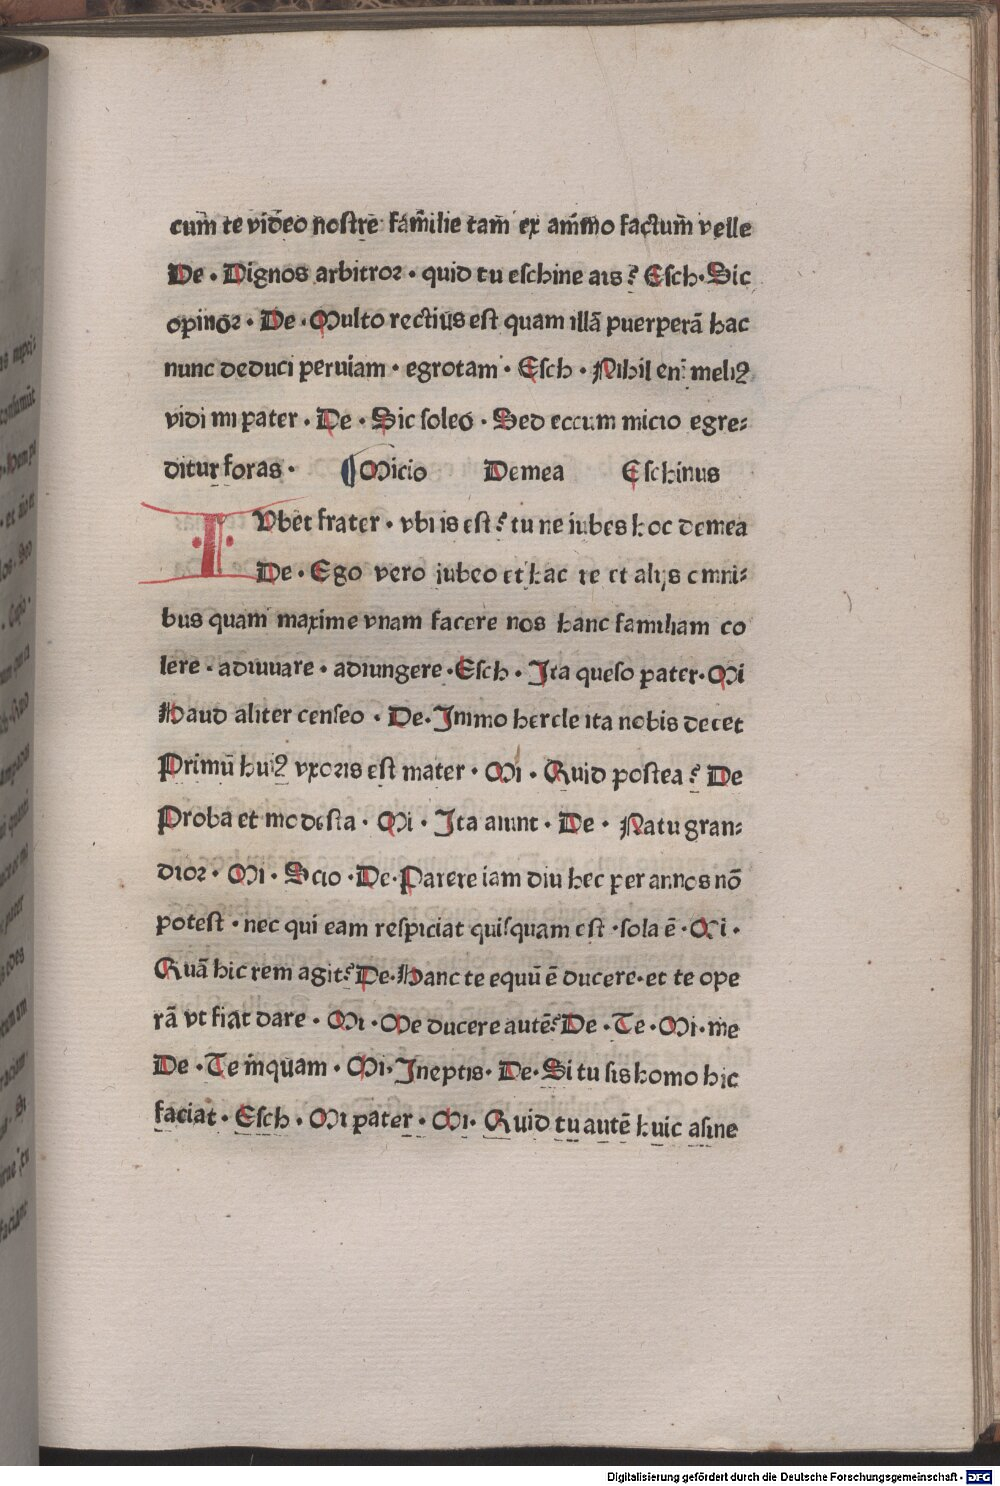 cum̄ te video nostrē fam̄ilie tam̄ ex am̄mo factum̄ velle
De · Dignos arbitror · quid tu eschine ais? Esch · Sic
opinor · De · Multo rectius est quam illā puerperā hac
nunc deduci peruiam · egrotam · Esch · Nihil eni meliꝰ
vidi mi pater · De · Sic soleo · Sed eccum micio egre⸗
ditur foras · ¶ Micio Demea Eschinus
IVbet frater · vbi is est? tu ne iubes hoc demea
De · Ego vero iubeo et hac re et alijs omni⸗
bus quam maxime vnam facere nos hanc familiam co
lere · adiuuare · adiungere · Esch · Ita queso pater · Mi
Haud aliter censeo · De · Immo hercle ita nobis decet
Primū huiꝰ vxoris est mater · Mi · Quid postea? De
Proba et modesta · Mi · Ita aiunt · De · Natu gran⸗
dior · Mi · Scio · De · Parere iam diu hec per annos nō
potest · nec qui eam respiciat quisquam est · sola ē · Mi ·
Quā hic rem agit? De · Hanc te equū ē ducere · et te ope
rā vt fiat dare · Mi · Me ducere autē? De · Te · Mi · me
De · Te inquam · Mi · Ineptis · De · Si tu sis homo hic
faciat · Esch · Mi pater · Mi · Quid tu autē huic asine
Digitalisierung gefördert durch die Deutsche Forschungsgemeinschaft - DFG